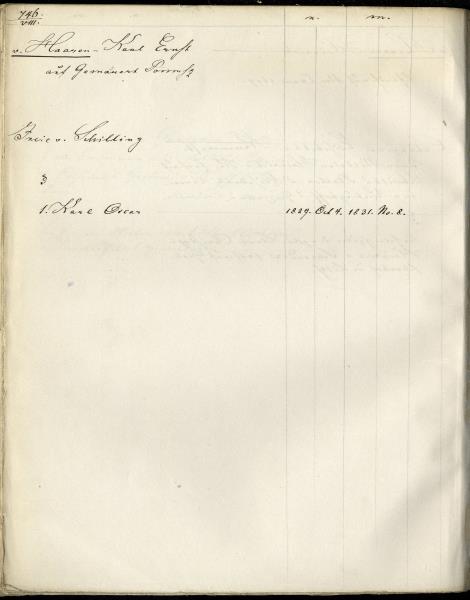 746.
VIII.
n. m.
v. Haaren - Karl Ernst
auf
Freie v. Schilling
3
1. Karl Oscar 1829. Oct 4. 1831. No. 8.